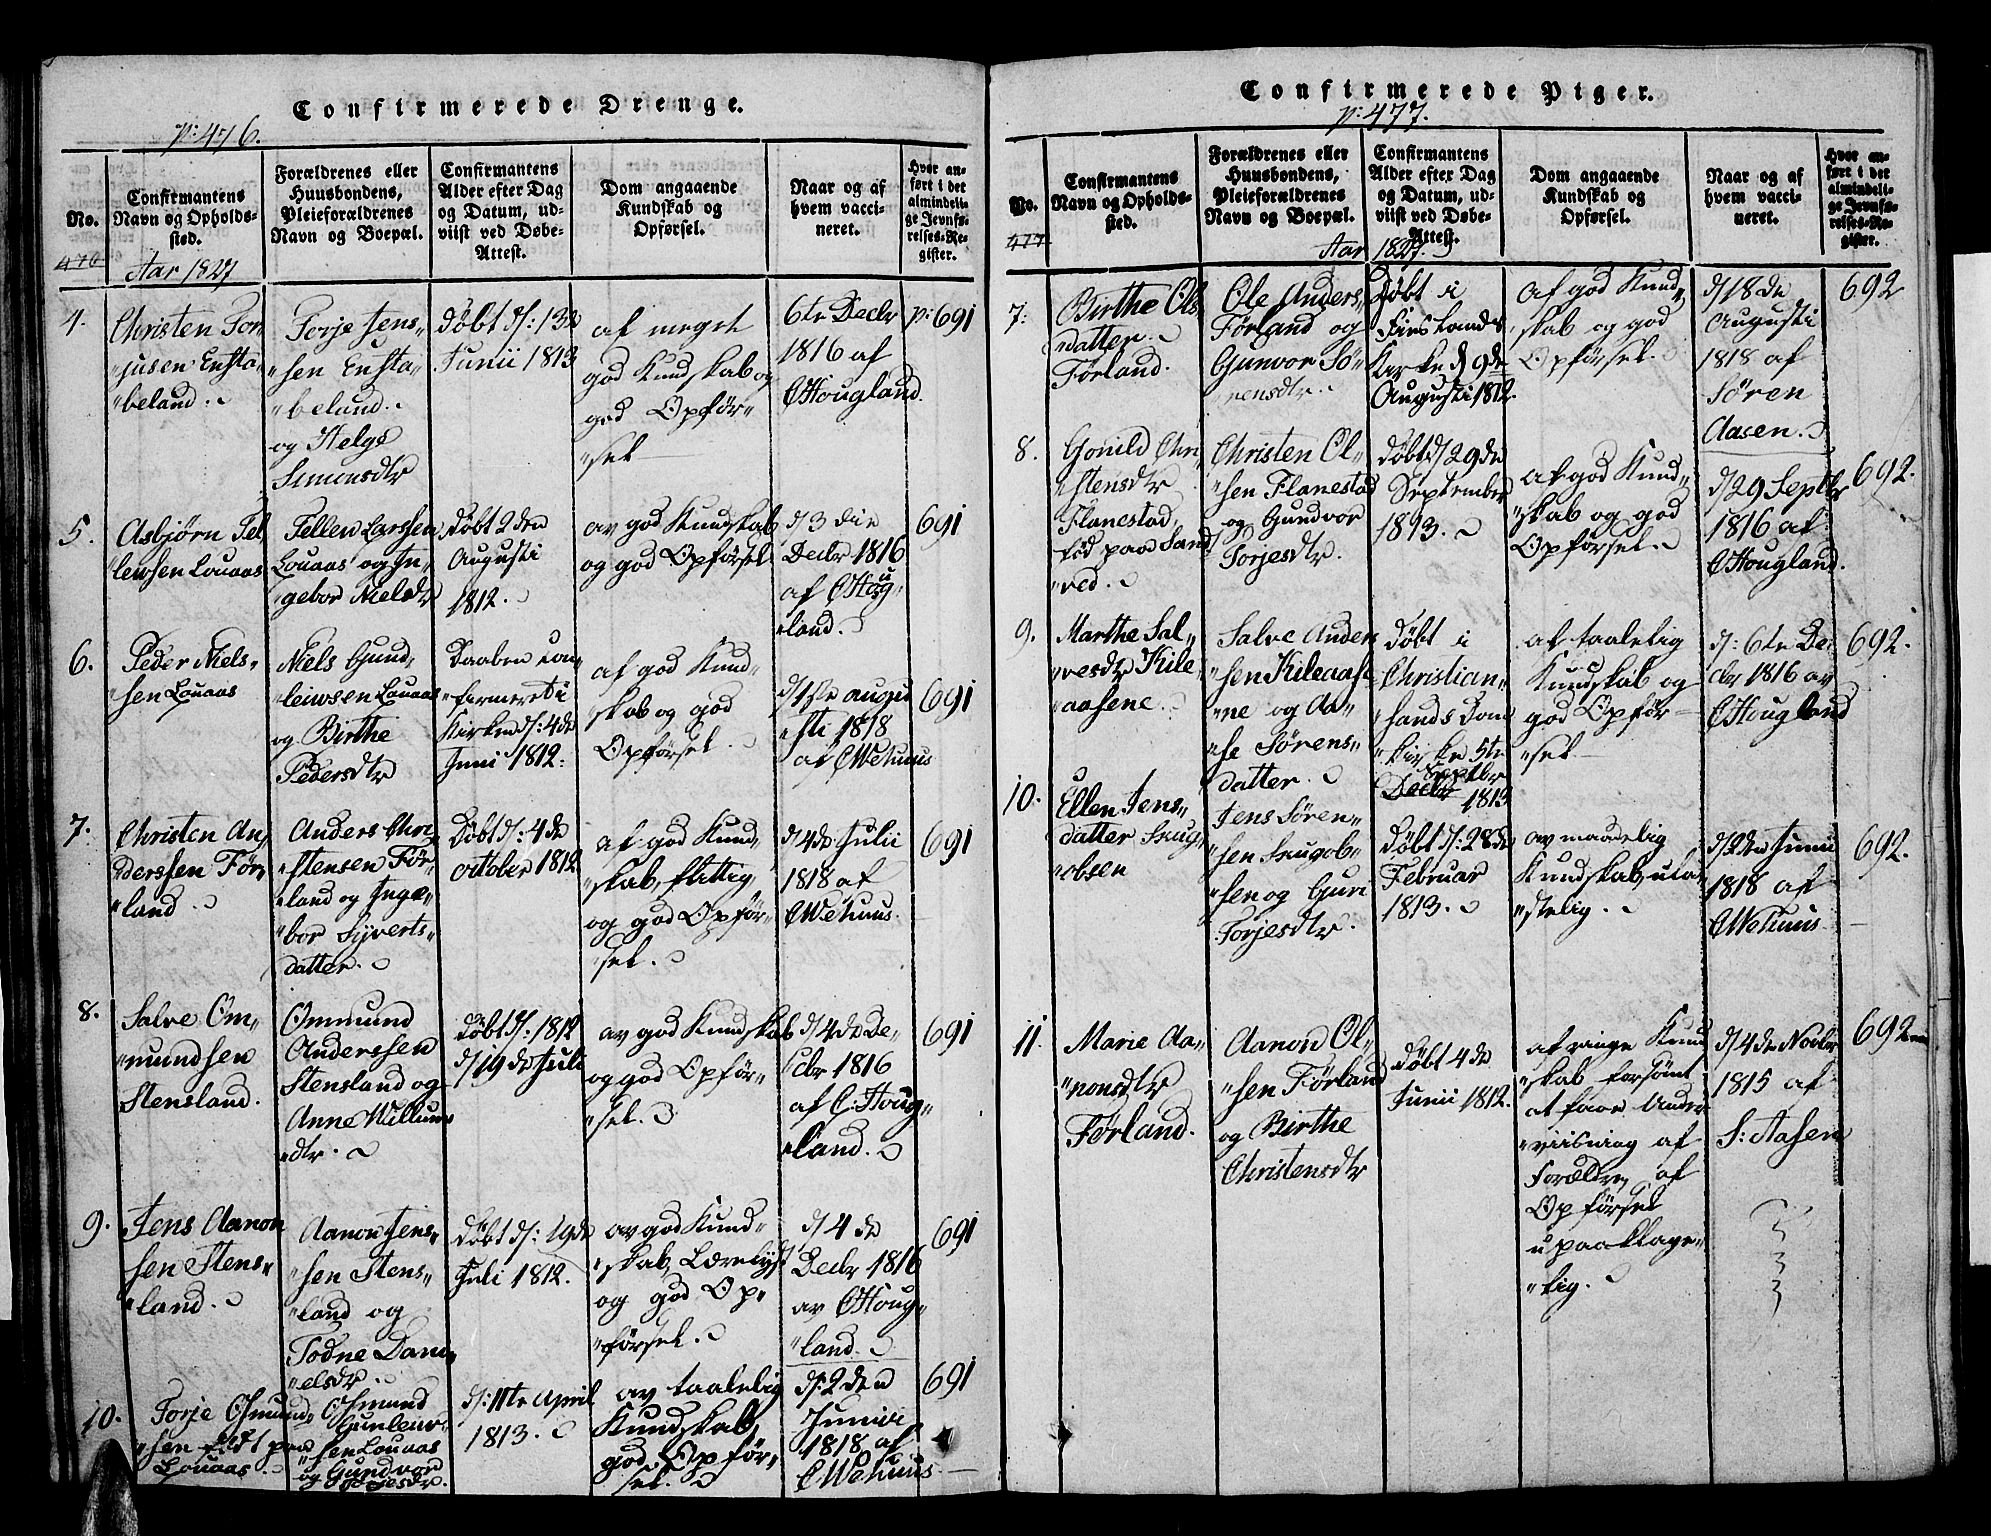 Confirmerede Drenge.
p: 476.
No.
Confirmantens
Navn og Opholds-
sted.
Forældrenes eller
Huusbondens,
Pleieforældrenes
Navn og Boepæl.
Confirmantens
Alder efter Dag
og Datum, ud-
viist ved Døbe-
Attest.
Dom angaaende
Kundskab og
Opførsel.
Naar og af
hvem vacci-
neret.
Hvor an-
ført i det
almindeli-
ge Jevnfø-
relses-Re-
gister.
476
Aar 1827
4.
Christen Tor
"jusen Ensta-
"beland.
Torje Jens-
"sen Ensta-
"beland.
og Helge
Simonsdtr
Døbt d: 13de
Junii 1813
af meget
god Kundskab og
god Opfør-
"sel
6te Decbr
1816 af
C Hougland.
p: 691
5.
Asbjørn Tel
lewsen Louaas
Tellev Larssen
Louaas og In-
"gebor Nielsdtr
Døbt 2den
Augusti
1812.
av god Kundskab
og god Opførsel
d/3 die
Decbr 1816
af C Houg-
"land.
691
6.
Peder Niels-
"sen Louaas
Niels Gund-
"leivsen Louaas
og Birthe
Pedersdtr
Daaben con-
"firmeret i
Kirken d: 4de
Junii 1812.
af god Kund-
skab og god
Opførsel.
d/1ste augu
"sti 1818
af C Wehuus
691
7.
Christen An
derssen Før
"land
Anders Chri
"stensen Før-
"land og Inge-
"bor Syverts-
datter.
Døbt d: 4de
october 1812
af god Kund-
"skab, flittig,
og god Opfør-
"sel.
d/4de Julii
1818 af
C Wehuus.
691
8.
Salve Om-
"mundsen
Stensland.
Ommund
Anderssen
Stensland og
Anne Willums
"dtr.
Døbt d: 1812
d/19de Juli
av god Kundskab
og god Opfør-
"sel.
d/4de De-
"cbr 1816
af C: Houg-
"land.
691
9.
Jens Aanon
sen Stens-
"land.
Aanon Jens-
"sen Stens-
"land og
Todne Dani-
"elsdtr.
Døbt d: 19de
Juli 1812.
av god Kund-
"skab, Lærelyst
og god Op-
"førsel.
d/4de
Decbr 1816
av C Houg-
"land.
691
10.
Torje Osmund-
"sen født paa
Louaas.
Osmund
Gunleiv-
"sen Louaas
og Gundvor
Torjesdtr.
d: 11te April
1813.
av taalelig
Kundskab,
god Opfør-
sel.
d: 2den
Junii
1818 af
C Wehuus
691
Confirmerede Piger.
p: 477.
No.
Confirmantens
Navn og Opholds-
sted.
Forældrenes eller
Huusbondens,
Pleieforældrenes
Navn og Boepæl.
Confirmantens
Alder efter Dag
og Datum, ud-
viist ved Døbe-
Attest.
Dom angaaende
Kundskab og
Opførsel.
Naar og af
hvem vacci-
neret.
Hvor an-
ført i det
almindeli-
ge Jevnfø-
relses-Re-
gister.
477
Aar 1827.
7.
Birthe Ols
"datter
Førland.
Ole Anders
Førland og
Gunvor Sø-
"rensdtr.
Døbt i
Kirke d 9de
Augusti 1812.
af god Kund-
skab og god
Opførsel.
d/18de
Augusti
1818 af
Sören
Aasen.
692
8.
Gonild Chri
"stensdtr
Flanestad
fød paa Sand
"ved.
Christen Ol-
"sen Flanestad
og Gundvor
Torjesdtr.
Døbt d/29de
September
1813.
af god Kund-
"skab og god
Opførsel.
d/29 Septbr
1816 af
C Hougland.
692.
9.
Marthe Sal-
"vesdtr Kile-
"aasene.
Salve Anders
"sen Kileaase
"ne og Aa-
"se Sørens-
datter.
Døbt i
Christian-
"sands Dom
"kirke 5te
Septbr
Decbr 1813
af taalelig
Kundskab og
god Opfør-
"sel
d: 6te De-
cbr 1816 av
C Hougland
692.
10.
Ellen Jens-
datter Snug-
"obsen
Jens Sören-
"sen Snugob-
"sen og Guri
Torjesdtr.
Døbt d: 28de
Februar
1813.
av maadelig
Kundskab, uta-
"delig.
d/2den Junii
1818 af
C Wehuus
692.
11.
Marie Aa-
"nonsdtr
Førland.
Aanon Ol-
"sen Førland
og Birthe
Christensdtr
Døbt 4de
Junii 1812.
af ringe Kund
"skab forsømt
at faae Under
"viisning af
Forældre, af
Opførsel
upaaklage-
"lig.
d/4de Novbr
1815 af
S: Aasen
692